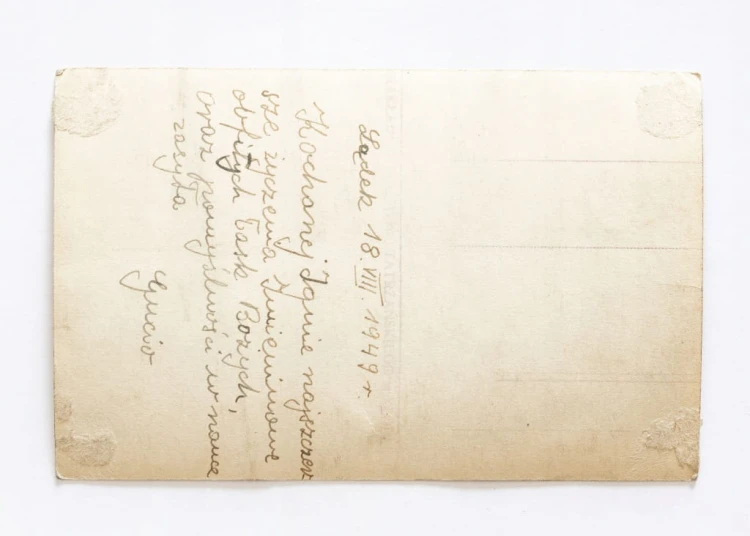 Lądek 18.VIII.1949 r.
Kochanej Igusie najszczer
sze życzenia Imieninowe
obfitych Łask Bożych,
oraz pomyślności w nauce
zasyła
Gucio